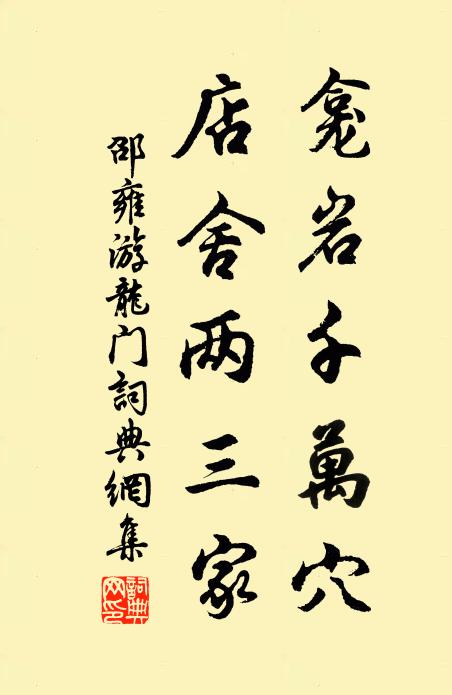 龛岩千萬穴
店舍两三家
邵雍游龍门詞典網集
詞典網印